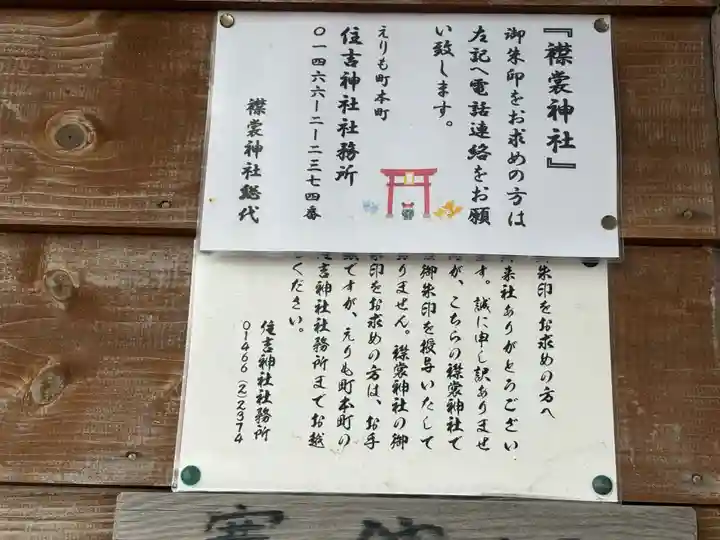 『襟裳神社』
御朱印をお求めの方は
左記へ電話連絡をお願
い致します。
えりも町本町
住吉神社社務所
〇一四六六ー二ー二三七四番
襟裳神社総代
朱印をお求めの方へ
来社ありがとうござい
ます。誠に申し訳ありませ
が、こちらの襟裳神社で
御朱印を授与いたして
おりません。襟裳神社の御
朱印をお求めの方は、お手
ですが、えりも町本町の
住吉神社社務所までお越
ください。
住吉神社社務所
01466(2)2374